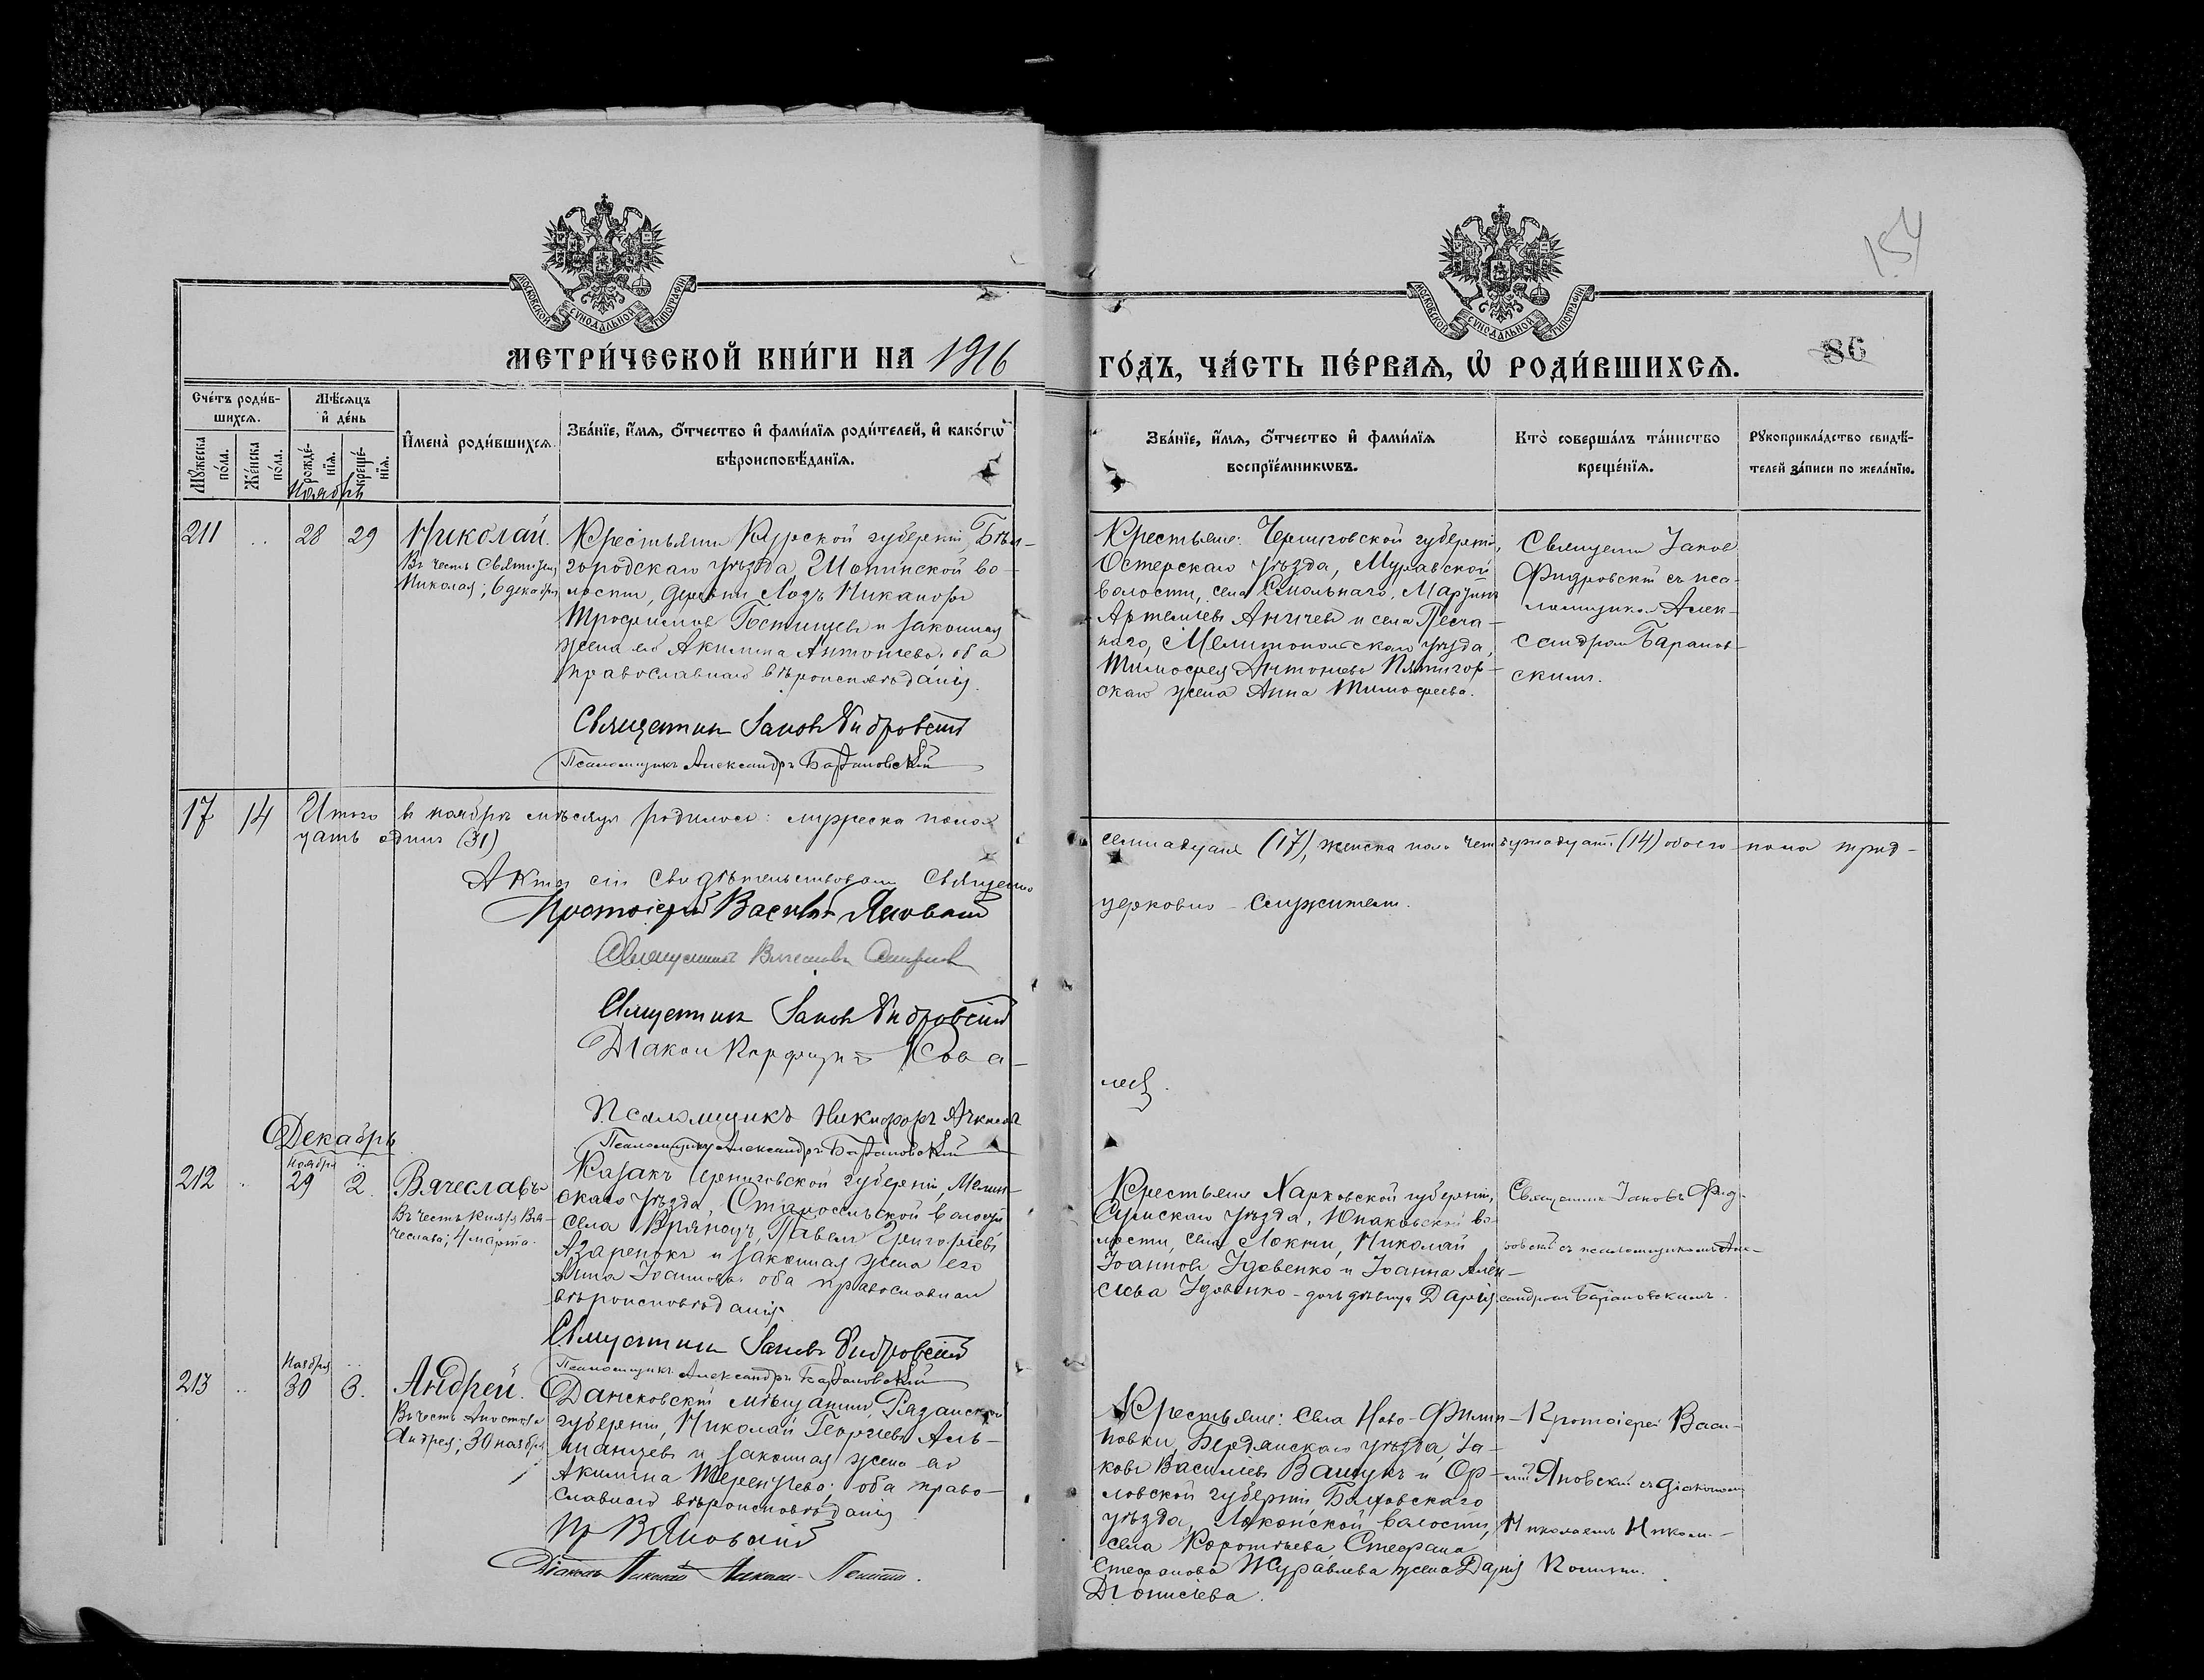 154
МОСКОВСКОЙ СѴНОДАЛЬНОЙ ТИПОГРАФІИ
МОСКОВСКОЙ СѴНОДАЛЬНОЙ ТИПОГРАФІИ
МЕТРИ́ЧЕСКОЙ КНИ́ГИ НА 1916
ГО́ДЪ, ЧА́СТЬ ПЕ́РВАѦ, Ѡ҆ РОДИ́ВШИХСѦ.
86
Сче́тъ роди́в-
шихсѧ.
Мꙋ́жеска
по́ла.
Же́нска
по́ла.
Мѣ́сѧцъ
и҆ де́нь
рожде́-
нїѧ.
креще́-
нїѧ.
Ноябрь
И҆мена̀ роди́вшихсѧ.
Зва́нїе, и҆́мѧ, ѻ҆́тчество и҆ фами́лїѧ роди́телей, и҆ како́гѡ
вѣроисповѣ́данїѧ.
Зва́нїе, и҆́мѧ, ѻ҆́тчество и҆ фами́лїѧ
воспрїе́мникѡвъ.
Кто̀ соверша́лъ та́инство
креще́нїѧ.
Рꙋкоприкла́дство свидѣ́-
телей за́писи по жела́нїю.
211 .. 28 29
Николай.
Въ честь Святителя
Николая; 6 декабря
Крестьянин Курской губерніи, Бѣл-
городскаго уѣзда, Шопинской во-
лости, деревни Логъ Никаноръ
Трофимовъ Гостищевъ и законная
жена его Акилина Антоніева, оба
православнаго вѣроисповѣданія.
Священникъ Іаковъ Фидровскій
Псаломщикъ Александръ Барановскій
Крестьяне: Черниговской губерніи,
Остерскаго уѣзда, Муравской
волости, села Смольнаго, Мартинъ
Артеміевъ и села Песча-
наго, Мелитопольскаго уѣзда,
Тимофея Антоніева Пятигор-
скаго жена Анна Тимофеева.
Священникъ Іаковъ
Фидровскій съ пса-
ломщикомъ Алек-
сандромъ Баранов-
скимъ.
17 14 Итого въ ноябрѣ мѣсяцѣ родилось: мужеска пола
семнадцать (17), женска пола четырнадцать (14) обоего пола трид-
цать одинъ (31)
Актъ сей свидѣтельствовали Священно
церковно-служители.
Протоіерей Василій Яновскій
Священникъ Вячеславъ
Священникъ Іаковъ Фидровскій
Діаконъ Кова-
левъ.
Псаломщикъ Никифоръ
Псаломщикъ Александръ Барановскій
Декабрь
Ноября
212 .. 29 2.
Вячеславъ
Въ честь князя Вя-
чеслава; 4 марта.
Казакъ Черниговской губерніи, Мглин-
скаго уѣзда, Старосельской волости
села Врянецъ, Павелъ Григоріевъ
Азаренокъ и законная жена его
Анна Іоаннова. оба православнаго
вѣроисповѣданія.
Священникъ Іаковъ Фидровскій
Псаломщикъ Александръ Барановскій
Крестьяне Харьковской губерніи,
Сумскаго уѣзда, Юнаковской во-
лости, села Локни, Николай
Іоанновъ Удовенко и Іоанна Алек-
сѣева Удовенко - дочь дѣвица Дарія
Священникъ Іаковъ Фид-
ровскій съ псаломщикомъ Але-
сандромъ Барановскимъ.
Ноября
213 .. 30 3.
Андрей.
Въ честь Апостола
Андрея; 30 ноября
Данковскій мѣщанинъ, Рязанской
губерніи, Николай Георгіевъ Аль-
шанцевъ и законная жена его
Акилина Терентіева; оба право-
славнаго вѣроисповѣданія
Пр. В. Яновскій
Діаконъ Николай
Крестьяне: села Ново-Филип-
повки, Бердянскаго уѣзда, Іа-
ковъ Василіевъ Ващукъ и Ор-
ловской губерніи, Болховскаго
уѣзда, волости,
села Коротѣева, Стефана
Стефанова Журавлева жена Дарія
Діонисіева.
Протоіерей Васи-
лій Яновскій съ діакономъ
Николаемъ